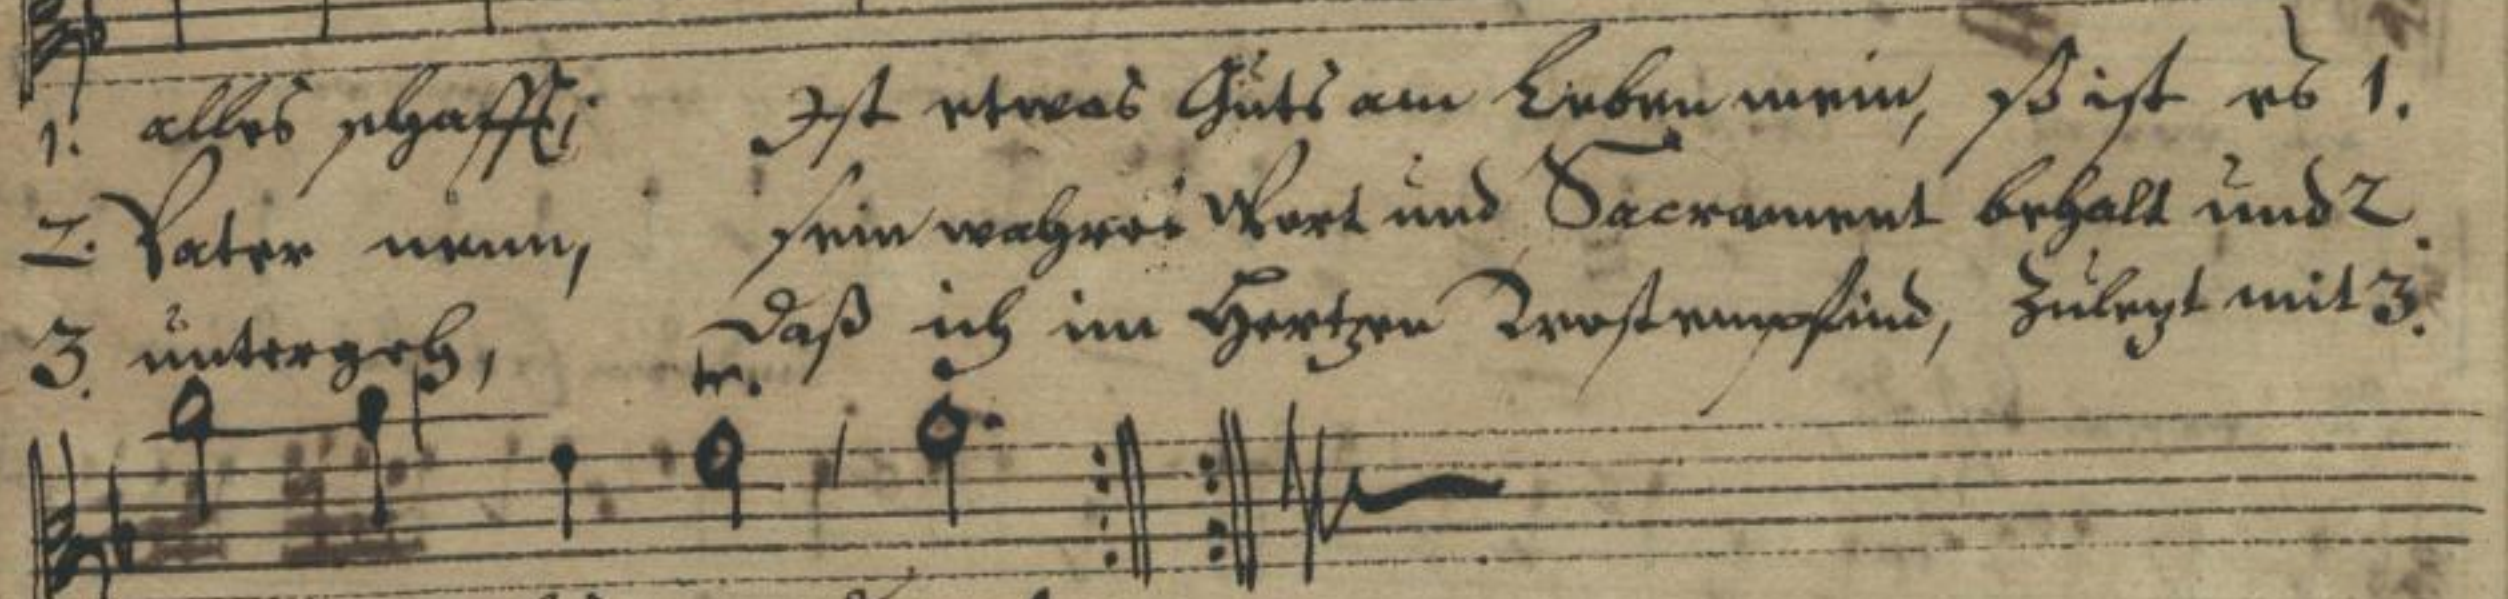 1. alles schafft; Ist etwas Guts am Leben mein, so ist es 1.
2. Vater nenn, sein wahres Wort und Sacrament behalt und 2.
3. untergeh, Daß ich im Hertzen Trost empfind, Zulezt mit 3.
tr.